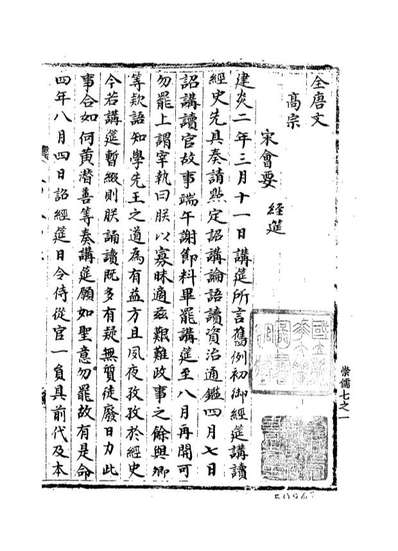 全唐文
髙宗
宋㑹要
經筵
建炎二年三月十一日講筵所言舊例初御經筵講讀
經史先具奏請㸃定詔講論語讀資治通鑑四月七日
詔講讀官故事端午謝節料畢罷講筵至八月再開可
勿罷上謂宰執曰朕以寡昧適兹艱難政事之餘與卿
等欵語知學先王之道為有益方且夙夜孜孜於經史
今若講筵暫綴則朕誦讀既多有疑無質徒廢日力此
事合如何黄潛善等奏講筵願如聖意勿罷故有是命
四年八月四日詔經筵日令侍從官一員具前代及本
崇儒七之一